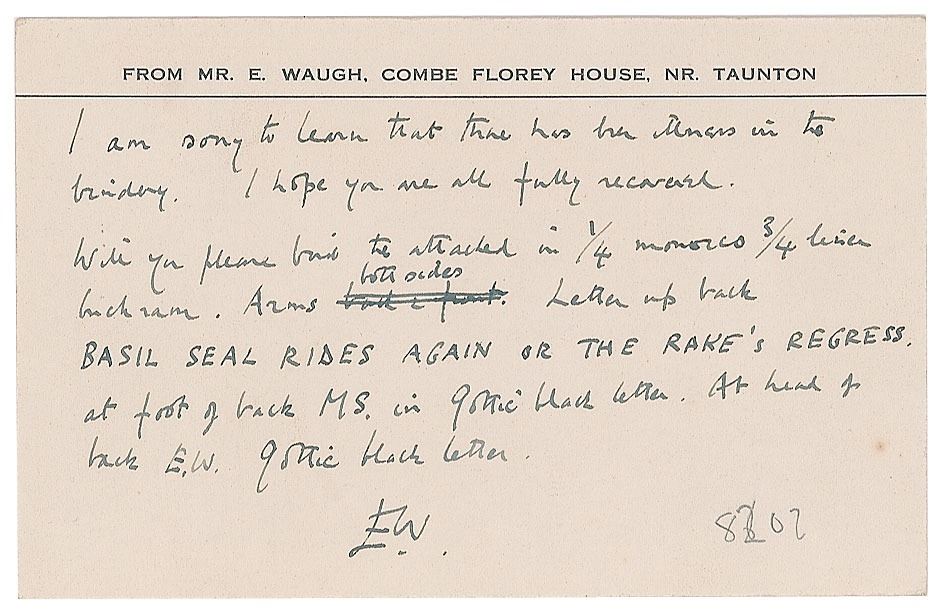 FROM MR. E. WAUGH, COMBE FLOREY HOUSE, NR. TAUNTON
I am sorry to learn that there has been illness in the
bindery. I hope you are all fully recovered.
Will you please bind the attached in 1/4 morocco 3/4 linen
both sides
buckram. Arms back & front. Letter up back
BASIL SEAL RIDES AGAIN OR THE RAKE'S REGRESS.
at foot of back MS. in Gothic black letter. At head of
back E.W. Gothic black letter.
E.W.